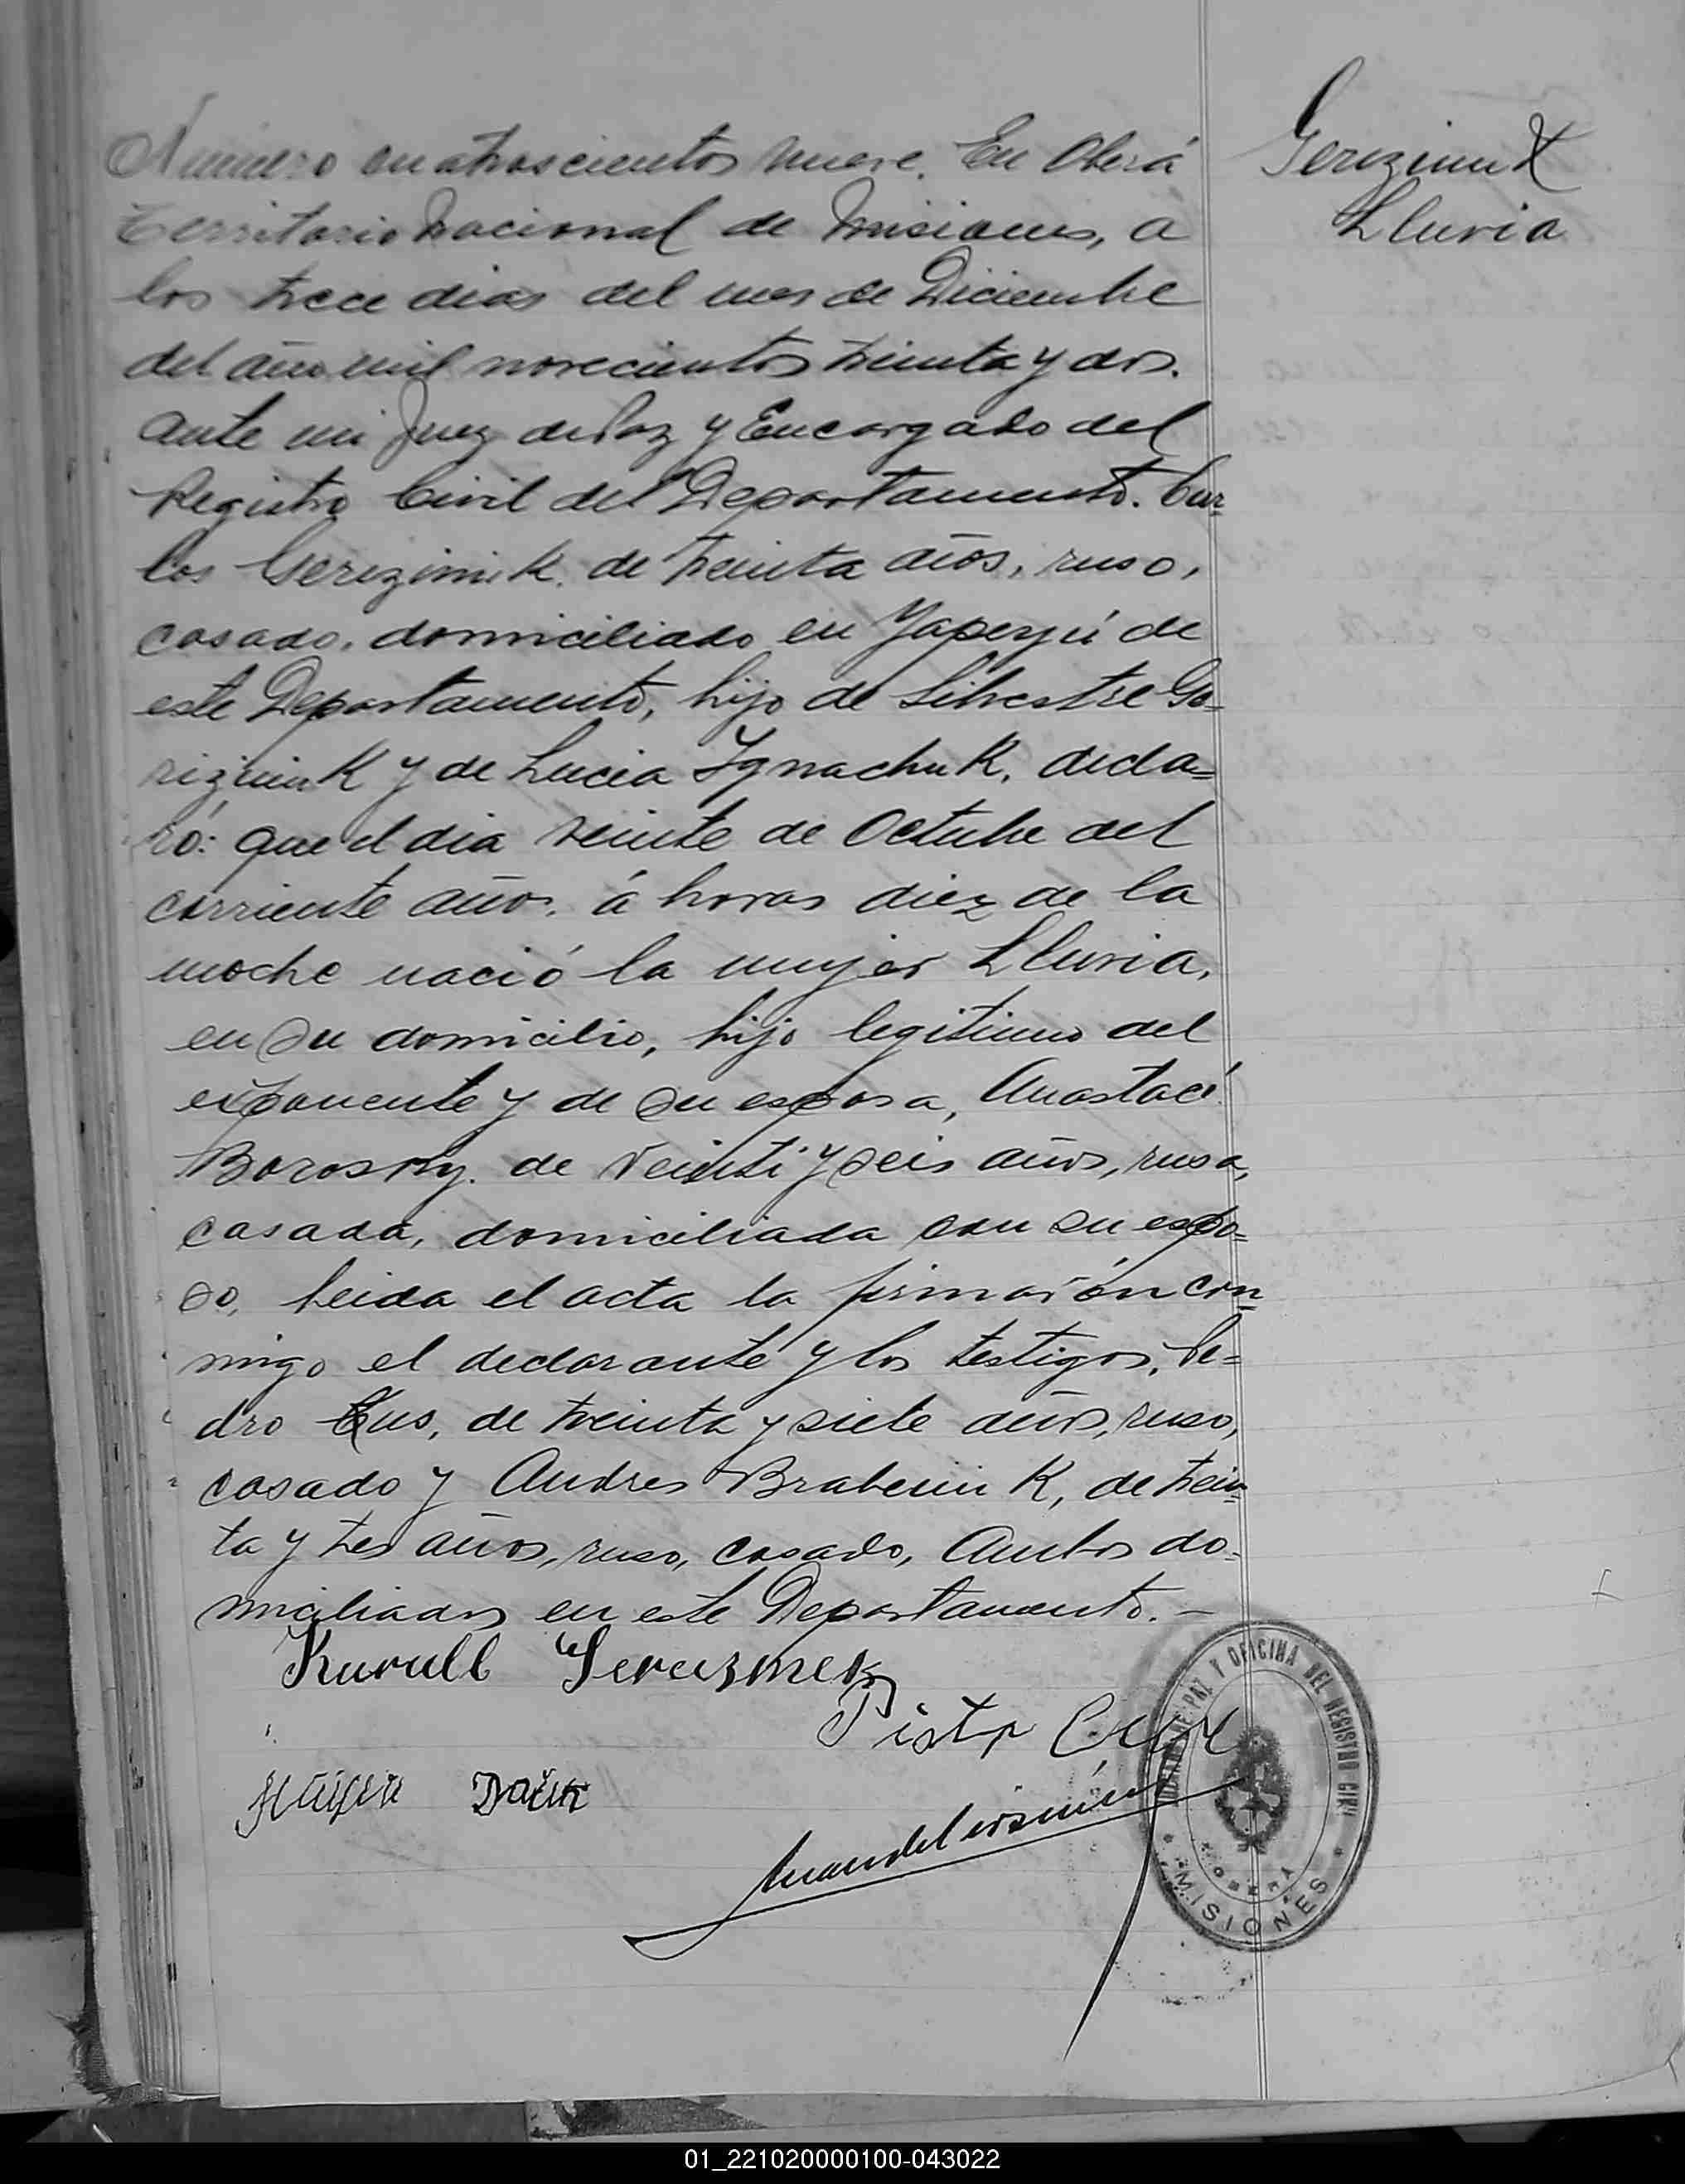 Número cuatroscientos nueve. En Oberá
Territorio Nacional de Misiones, a
los trece dias del mes de Diciembre
del año mil novecientos treinta y dos.
ante mi Juez de Paz y Encargado del
Registro Civil del Departamento. Car-
los Gerezimik. de treinta años, ruso,
casado, domiciliado en Yapeyú de
este Departamento, hijo de Silvestre Ge-
rizimik y de Lucia Ygnachuk, decla=
ró: que el dia veinte de Octubre del
corriente años, á horas diez de la
noche nació la mujer Lluvia,
en su domicilio, hijo legitimo del
exponente y de su esposa, Anastaci
Borosky. de veinti y seis años, rusa,
casada, domiciliada con su espo=
so, leida el acta la firmarón con
migo el declarante y los testigos, Pe=
dro Kus, de treinta y siete años, ruso,
casado y Andres Brabenik, de trein
ta y tres años, ruso, casado, Ambos do-
miciliados en este Departamento. -
Gerezimik
Lluvia
Piotr
PAZ Y OFICINA DEL REGISTRO CIVIL
OBERÁ
MISIONES
01_221020000100-043022